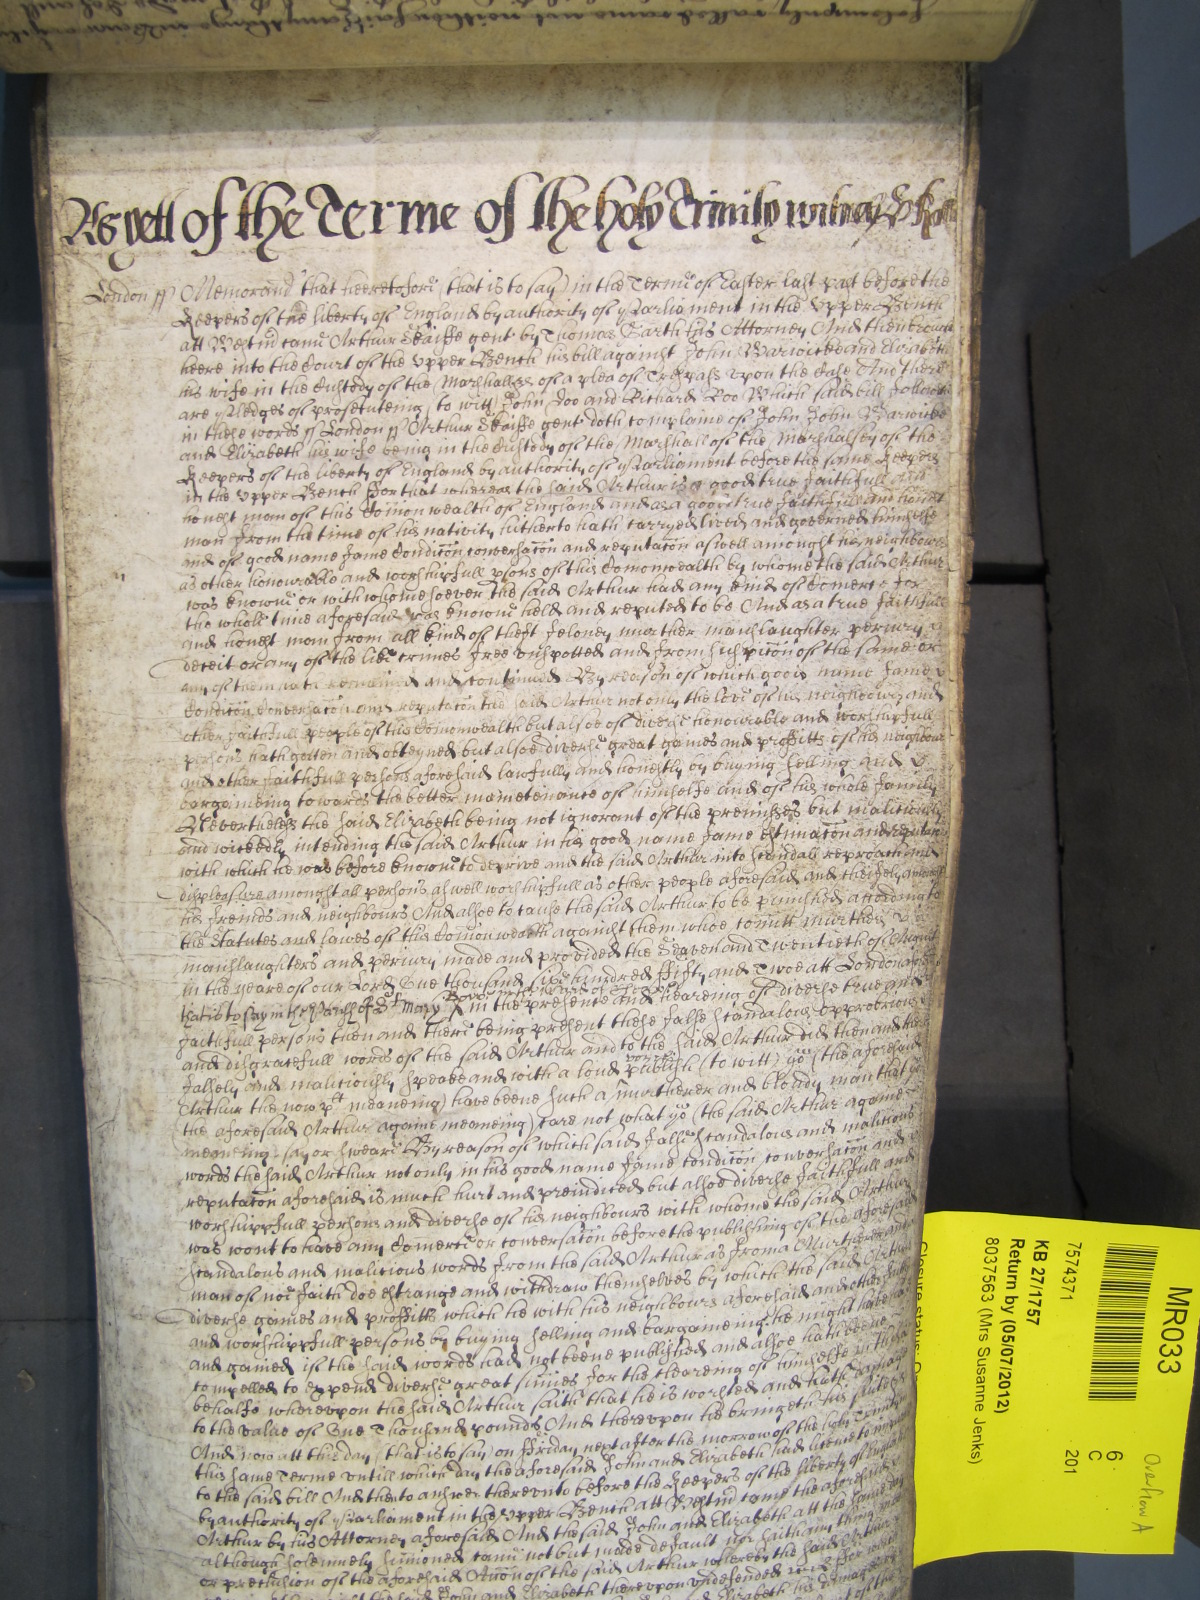 As yett of the Terme of the holy Trinity witnes
London ss Memorand that heretofore (that is to say) in the Terme of Easter last past before the
Keepers of the liberty of England by authority of Parliament in the Upper Bench
att Westm came Arthur Skaiffe gent by Thomas Garth his Attorney And then brought
heere into the Court of the Upper Bench his bill against John Warwicke and Elizabeth
his wife in the Custody of the Marshall &c of a plea of Trespass upon the Case And there
are Pledges of prosecuteing (to witt) John Doo and Richard Roo Which said bill followeth
in these words ss London ss Arthur Skaiffe gent doth complaine of John John Warwicke
and Elizabeth his wife being in the Custody of the Marshall of the Marshalsey of the
Keepers of the liberty of England by authority of Parliament before the same Keepers
in the Upper Bench ffor that whereas the said Arthur is a good true faithfull and
honest man of this Comon wealth of England and as a good true faithfull and honest
man from the time of his nativity hitherto hath carryed lived and governed himselfe
and of good name fame Condicon conversacon and reputacon aswell amongst his neighbours
as other honourable and worshipfull psons of this Comonwealth by whome the said Arthur
was knowne or with whome soever the said Arthur had any kind of Comerce for
the whole time aforesaid was knowne held and reputed to be And as a true faithfull
and honest man from all kind of theft feloney murther manslaughter periury
deceit or any of the like crimes free unspotted and from suspicon of the same or
any of them hath remained and continued By reason of which good name fame
Condicon Conversacon and reputacon the said Arthur not only the love of his neighbours and
other faithfull people of this Comonwealth but alsoe of diverse honourable and worshipfull
persons hath gotten and obteyned but alsoe diverse great gaines and proffitts of his neighbours
and other faithfull persons aforesaid lawfully and honestly by buying selling and
bargaineing towards the better mainteinance of himselfe and of his whole family
Neverthelesse the said Elizabeth being not ignorant of the premisses but maliciously
and wickedly intending the said Arthur in his good name fame estimacon and reputacon
with which he was before knowne to deprive and the said Arthur into scandall reproach and
displeasure amongst all persons aswell worshipfull as other people aforesaid and cheifely amongst
his freinds and neighbours And alsoe to cause the said Arthur to be punished according to
the Statutes and lawes of this Comon wealth against them whoe comitt murther
manslaughters and periury made and provided the Seaven and Twentieth of August
in the yeare of our Lord One thousand six hundred ffifty and Twoe att London aforesaid
that is to say in the Parish of St Mary Bowe in the Ward of Cheape in the presence and heareing of diverse true and
faithfull persons then and there being present these false scandalous opprobrious
and disgracefull words of the said Arthur and to the said Arthur did then and there
falsely and maliciously speake and with a loud voyce publish (to witt) yo (the aforesaid
Arthur the now plt meaneing) have beene such a murtherer and bloudy man that yo
(the aforesaid Arthur againe meaneing) care not what yo (the said Arthur againe
meaneing) say or sweare By reason of which said false scandalous and malitious
words the said Arthur not only in his good name fame condicon conversacon and
reputacon aforesaid is much hurt and preiudiced but alsoe diverse faithfull and
worshippfull persons and diverse of his neighbours with whome the said Arthur
was wont to have any Comerce or conversacon before the publishing of the aforesaid
scandalous and malitious words from the said Arthur as from a Murtherer and a
man of noe faith doe estrange and withdraw themselves by which the said Arthur
diverse gaines and proffitts which he with his neighbours aforesaid and other faithfull
and worshippfull persons by buying selling and bargaineing he might have had
and gained if the said words had not beene published and alsoe hath beene
compelled to expend diverse great sumes for the cleareing of himselfe in this
behalfe whereupon the said Arthur saith that he is worsted and hath damage
to the value of One Thousand pounds And thereupon he bringeth his suite &c
And now att this day (that is to say) on ffriday next after the morrow of the holy Trinity
this same Terme untill which day the aforesaid John and Elizabeth had licence to imparle
to the said bill And then to answer thereunto before the Keepers of the liberty of England
by authority of Parliament in the Upper Bench att Westm came the aforesaid
Arthur by his Attorney aforesaid And the said John and Elizabeth att the same day
although solemnely sumoned came not but made default nor saith any thing
or preclusion of the aforesaid Accon of the said Arthur whereby the said Arthur
MR033
7574371
6
C
201
KB 27/1757
Return by (05/07/2012)
8037563 (Mrs Susanne Jenks)